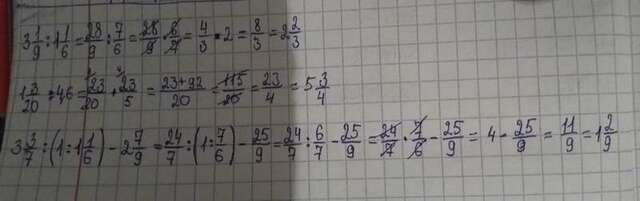 3 1/9 : 1 1/6 = 28/9 : 7/6 = 28/9 · 6/7 = 4/3 · 2 = 8/3 = 2 2/3
1 3/20 + 4,6 = 23/20 + 23/5 = 23+92/20 = 115/20 = 23/4 = 5 3/4
3 3/7 : (1 : 1 1/6) - 2 7/9 = 24/7 : (1 : 7/6) - 25/9 = 24/7 : 6/7 - 25/9 = 24/7 · 7/6 - 25/9 = 4 - 25/9 = 11/9 = 1 2/9